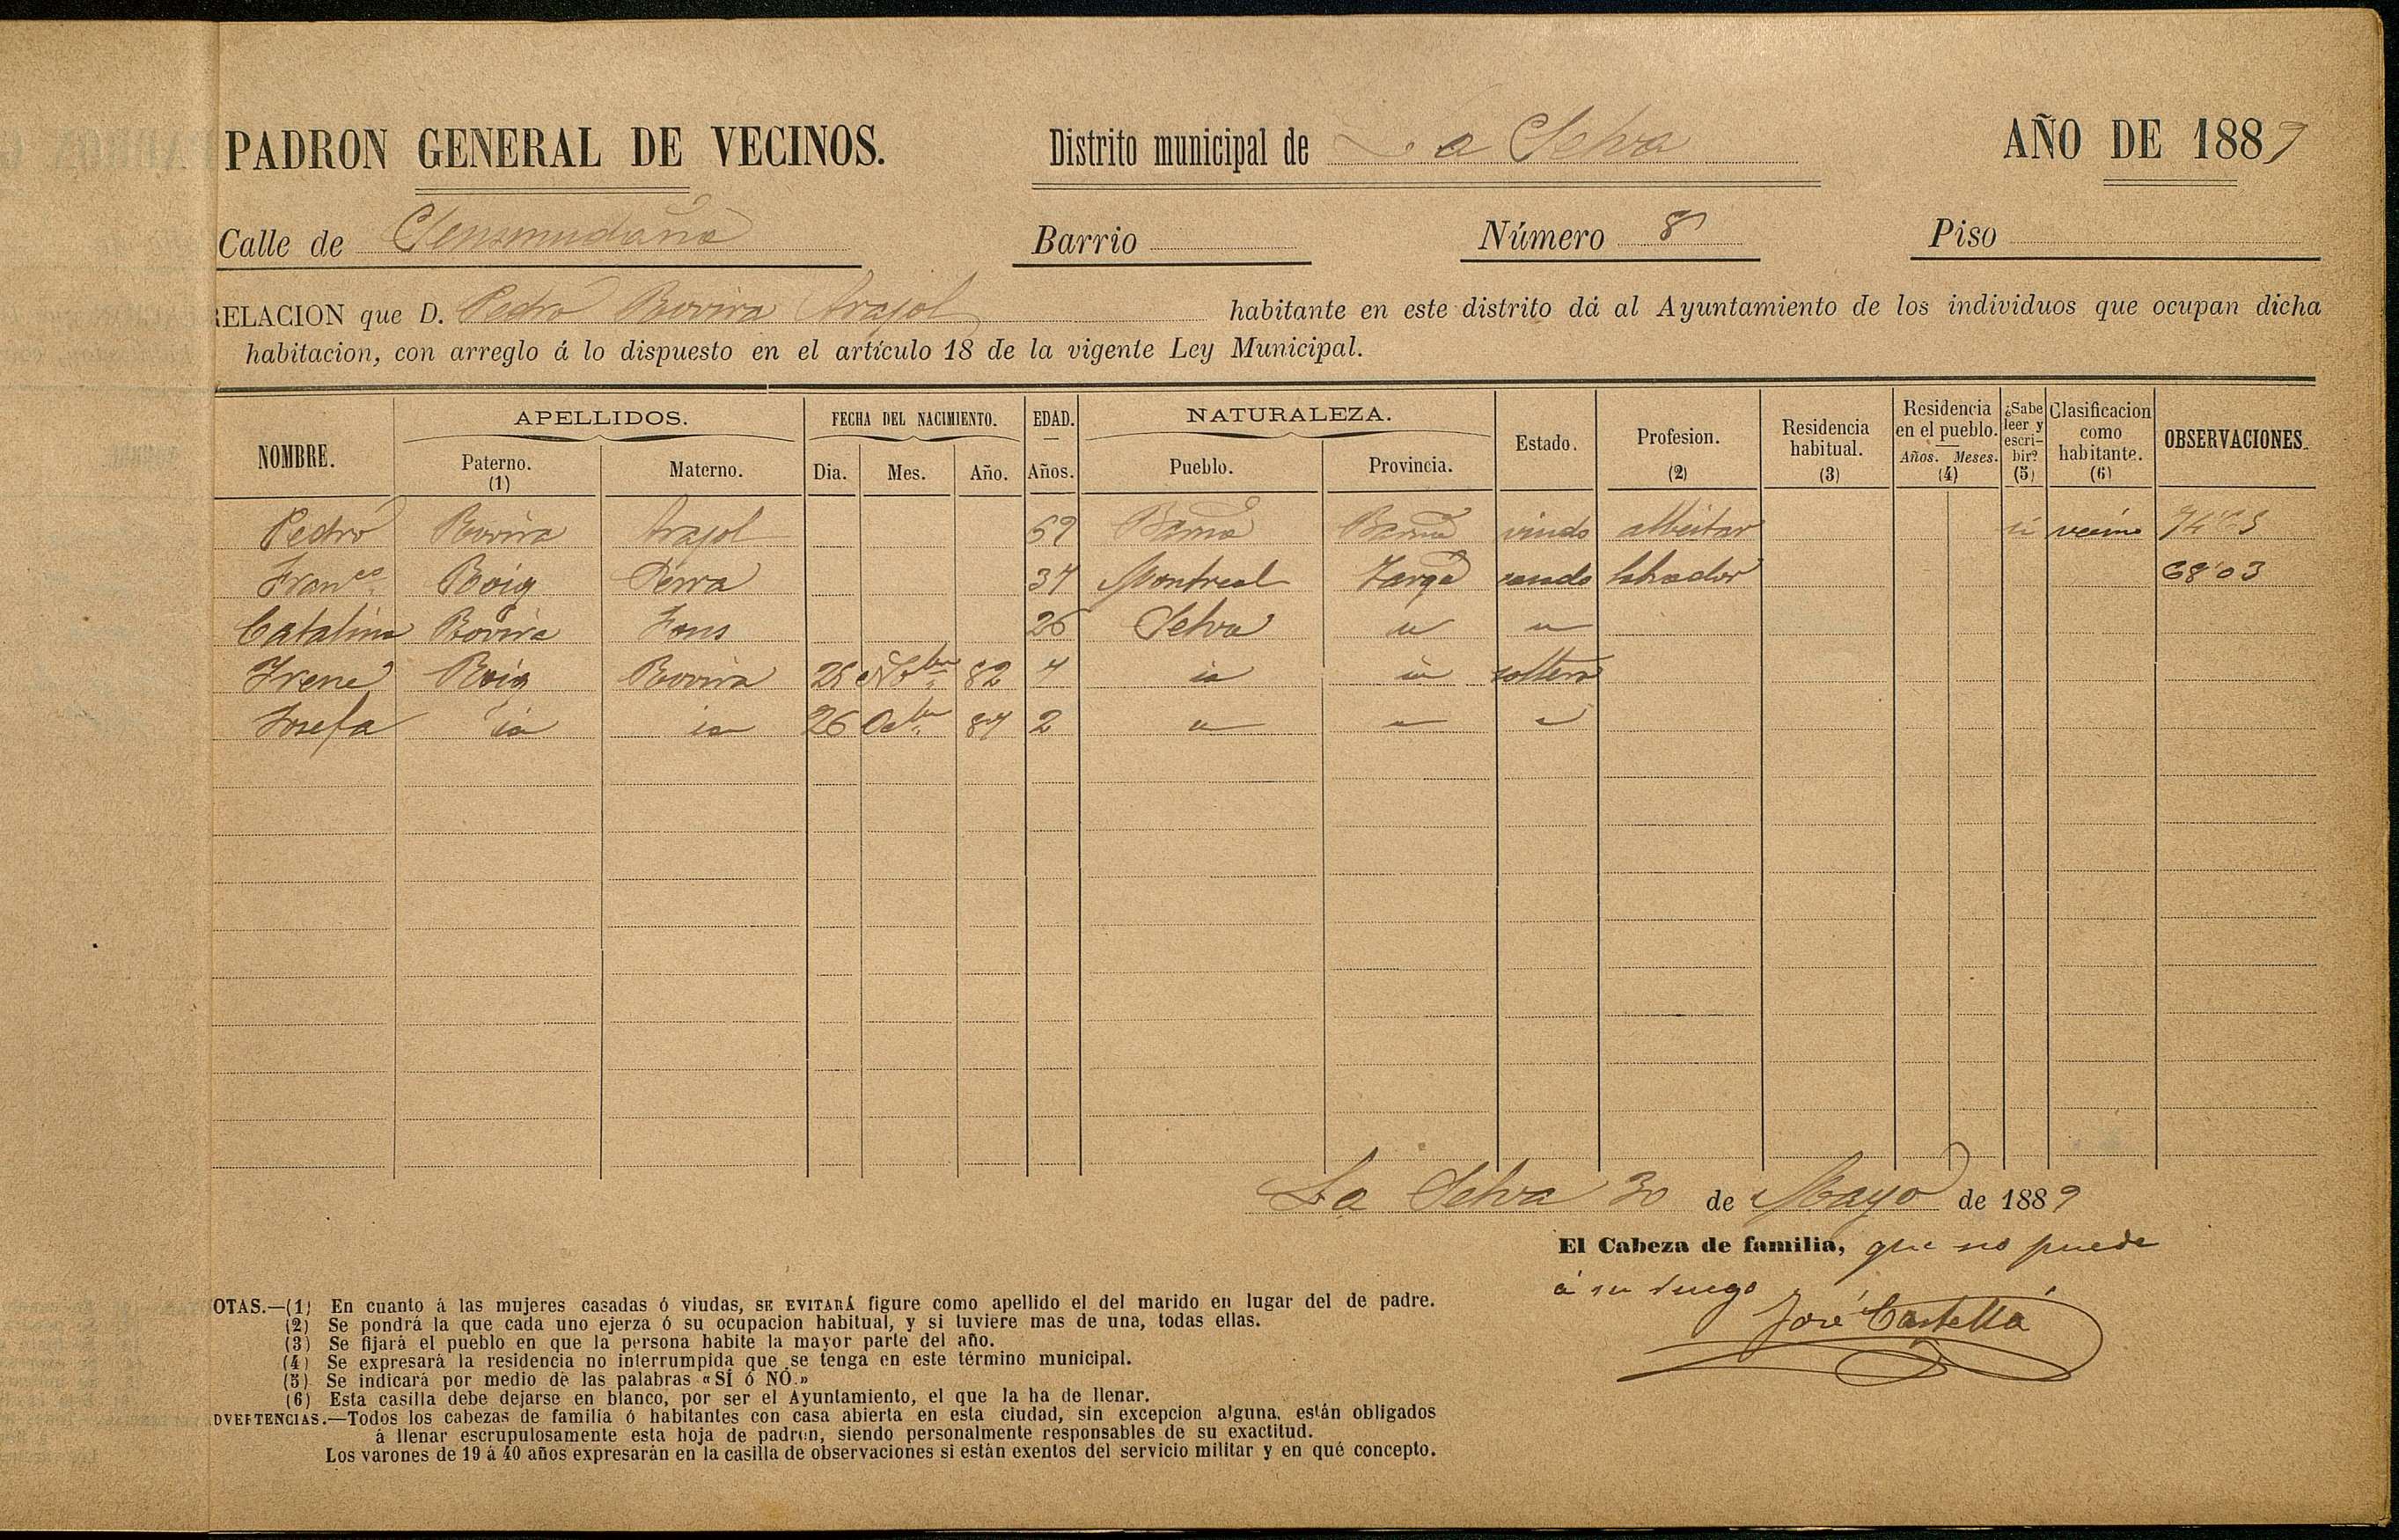 PADRON GENERAL DE VECINOS. Distrito municipal de La Selva AÑO DE 1889
Calle de Barrio Número 8 Piso
RELACION que D. Pedro Rovira Arajol habitante en este distrito dá al Ayuntamiento de los individuos que ocupan dicha
habitacion, con arreglo á lo dispuesto en el artículo 18 de la vigente Ley Municipal.
NOMBRE. APELLIDOS. FECHA DEL NACIMIENTO. EDAD. NATURALEZA. Estado. Profesion. (2) Residencia habitual. (3) Residencia en el pueblo. Años. Meses. (4) ¿Sabe leer y escri-bir? (5) Clasificacion como habitante. (6) OBSERVACIONES.
Paterno. (1) Materno. Dia. Mes. Año. Años. Pueblo. Provincia.
Pedro Rovira Arajol Barna Barna viudo albeitar si vecino
Franco Roig 34 Montreal Targa casado labrador 68'03
Catalina Rovira 26 Selva
Irene Roig Rovira 82 4 soltera
Josefa id id 26 Ocbre 84 2
La Selva 30 de Mayo de 1889
El Cabeza de familia, que no puede
á su ruego
José Castellá
OTAS.—(1) En cuanto á las mujeres casadas ó viudas, SE EVITARÁ figure como apellido el del marido en lugar del de padre.
(2) Se pondrá la que cada uno ejerza ó su ocupacion habitual, y si tuviere mas de una, todas ellas.
(3) Se fijará el pueblo en que la persona habite la mayor parte del año.
(4) Se expresará la residencia no interrumpida que se tenga en este término municipal.
(5) Se indicará por medio de las palabras «SÍ ó NO.»
(6) Esta casilla debe dejarse en blanco, por ser el Ayuntamiento, el que la ha de llenar.
DVERTENCIAS.—Todos los cabezas de familia ó habitantes con casa abierta en esta ciudad, sin excepcion alguna, están obligados
á llenar escrupulosamente esta hoja de padron, siendo personalmente responsables de su exactitud.
Los varones de 19 á 40 años expresarán en la casilla de observaciones si están exentos del servicio militar y en qué concepto.